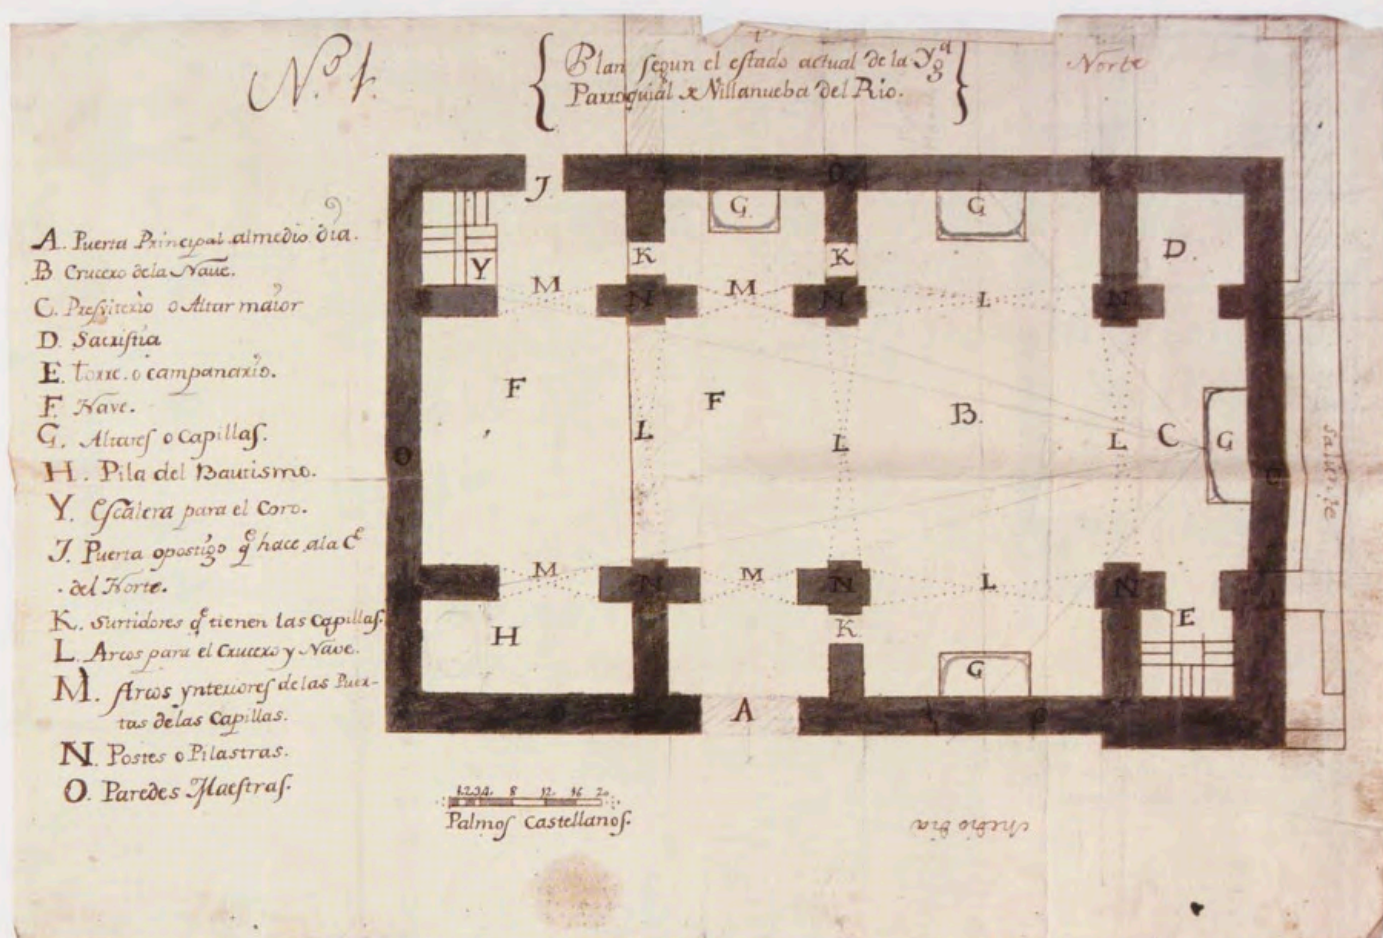 N.º 1.
Plan segun el estado actual de la Yg.ª
Parroquial de Villanueba del Rio.
Norte
A. Puerta Principal al medio dia.
B Crucero de la Nave.
C. Presviterio o Altar maior
D. Sacristia
E. torre o campanario.
F. Nave.
G. Altares o Capillas.
H. Pila del Bautismo.
Y. Escalera para el Coro.
J. Puerta o postigo q.e hace a la C.e
del Norte.
K. Surtidores q.e tienen las Capillas.
L. Arcos para el Crucero y Nave.
M. Arcos ynteriores de las Puer-
tas de las Capillas.
N. Postes o Pilastras.
O. Paredes Maestras.
J O
G G
K K D
Y
M N M N L N
F F B
O L L L C G O
M N M N L N
H K E
G
A
1.2.3.4. 8 12. 16 20
Palmos Castellanos.
Medio dia